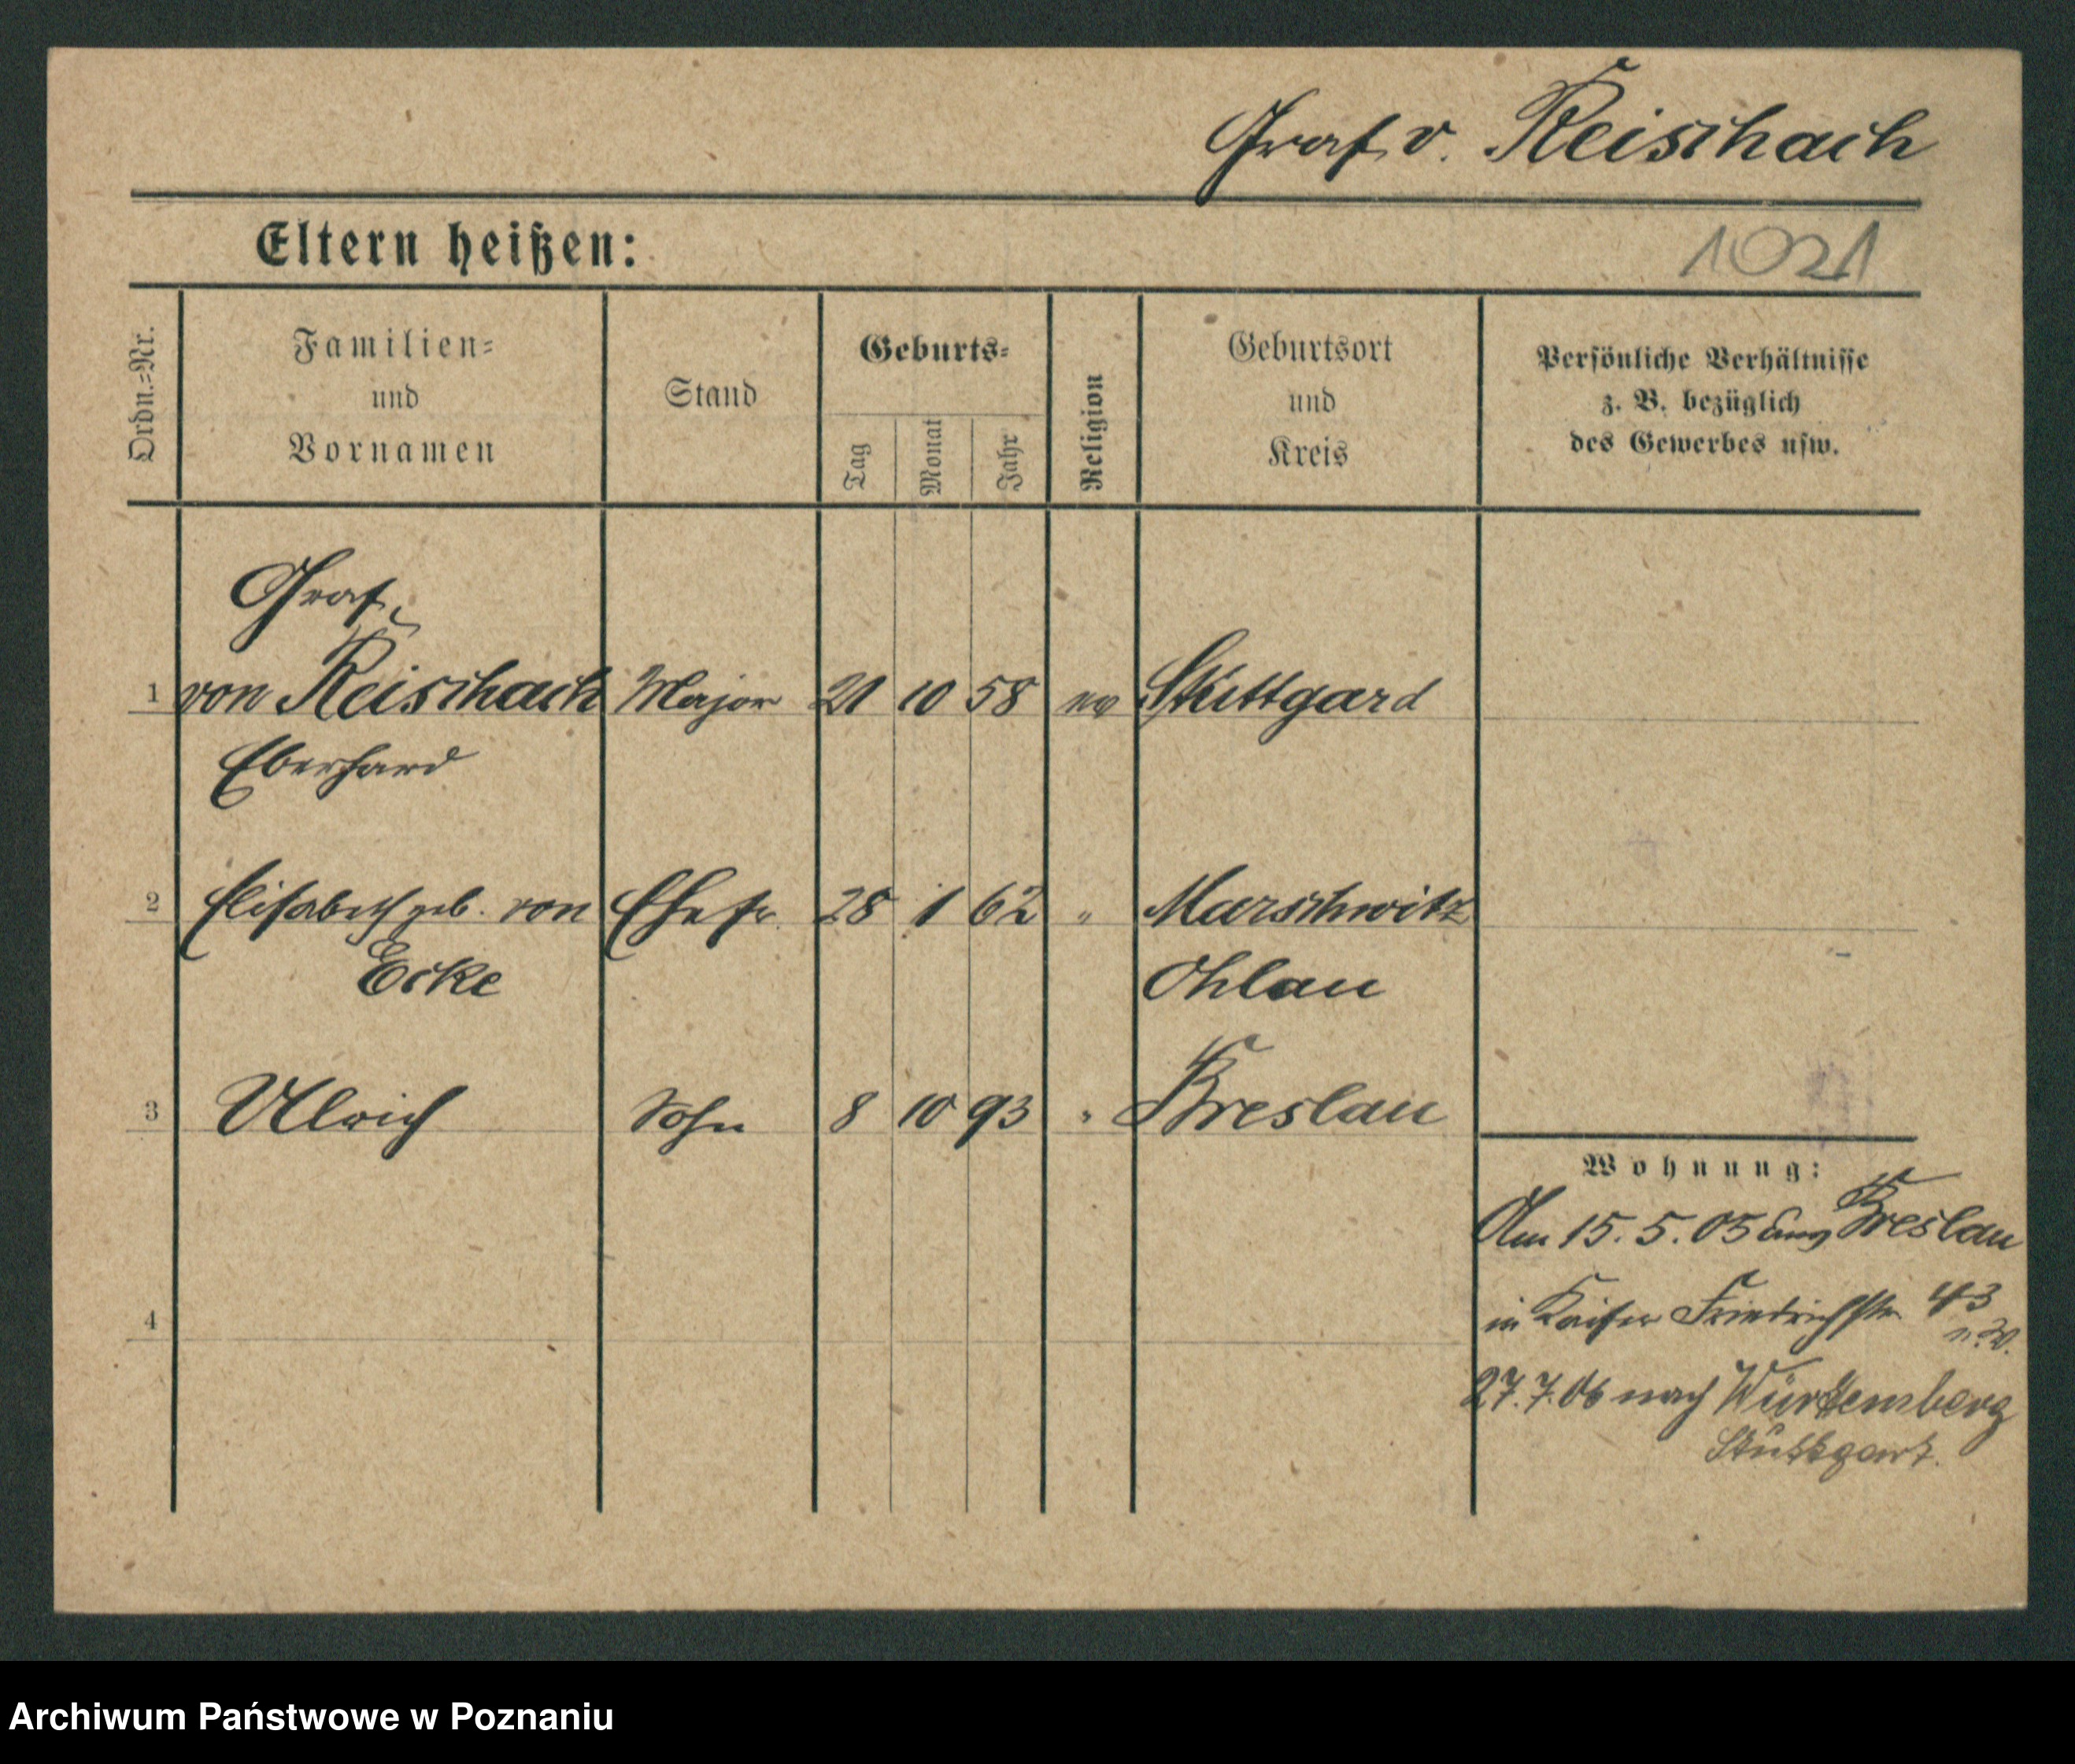 Graf v. Reischach
Eltern heißen:
1021
Ordn.=Nr.
Familien=
und
Vornamen
Stand
Geburts=
Tag
Monat
Jahr
Religion
Geburtsort
und
Kreis
Persönliche Verhältnisse
z. B. bezüglich
des Gewerbes usw.
Graf
1 von Reischach Major 21 10 58 ev Stuttgard
Eberhard
2 Elisabeth geb. von Ehefr. 28 1 62 " Marschwitz
Ecke Ohlau
3 Ulrich Sohn 8 10 93 " Breslau
4
Wohnung:
Am 15. 5. 05 Breslau
in Kaiser Friedrichstr. 43
27. 7. 06 nach Würtemberg
Stuttgart.
Archiwum Państwowe w Poznaniu